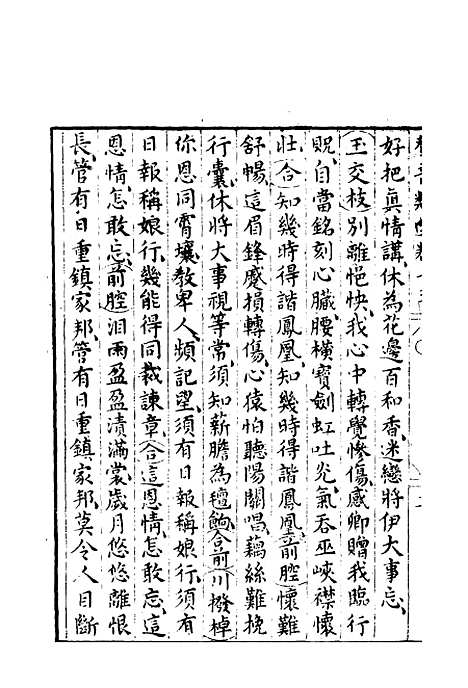 好把真情講休為花邊百和香迷戀將伊大事忘
玉交枝別離悒怏我心中轉覺慘傷感卿贈我臨行
貺自當銘刻心臟腰橫寶劍虹吐光氣吞巫峽襟懷
壯合知幾時得諧鳳凰知幾時得諧鳳凰前腔懷難
舒暢這眉鋒蹙損轉傷心猿怕聽陽關唱藕絲難挽
行囊休將大事視等常須知薪膽為檀餉合前川撥棹
你恩同霄壤教卑人頻記望須有日報稱娘行須有
日報稱娘行幾能得同裁諫章合這恩情怎敢忘這
恩情怎敢忘前腔淚雨盈盈漬滿裳歲月悠悠離恨
長管有日重鎮家邦管有日重鎮家邦莫令人目斷